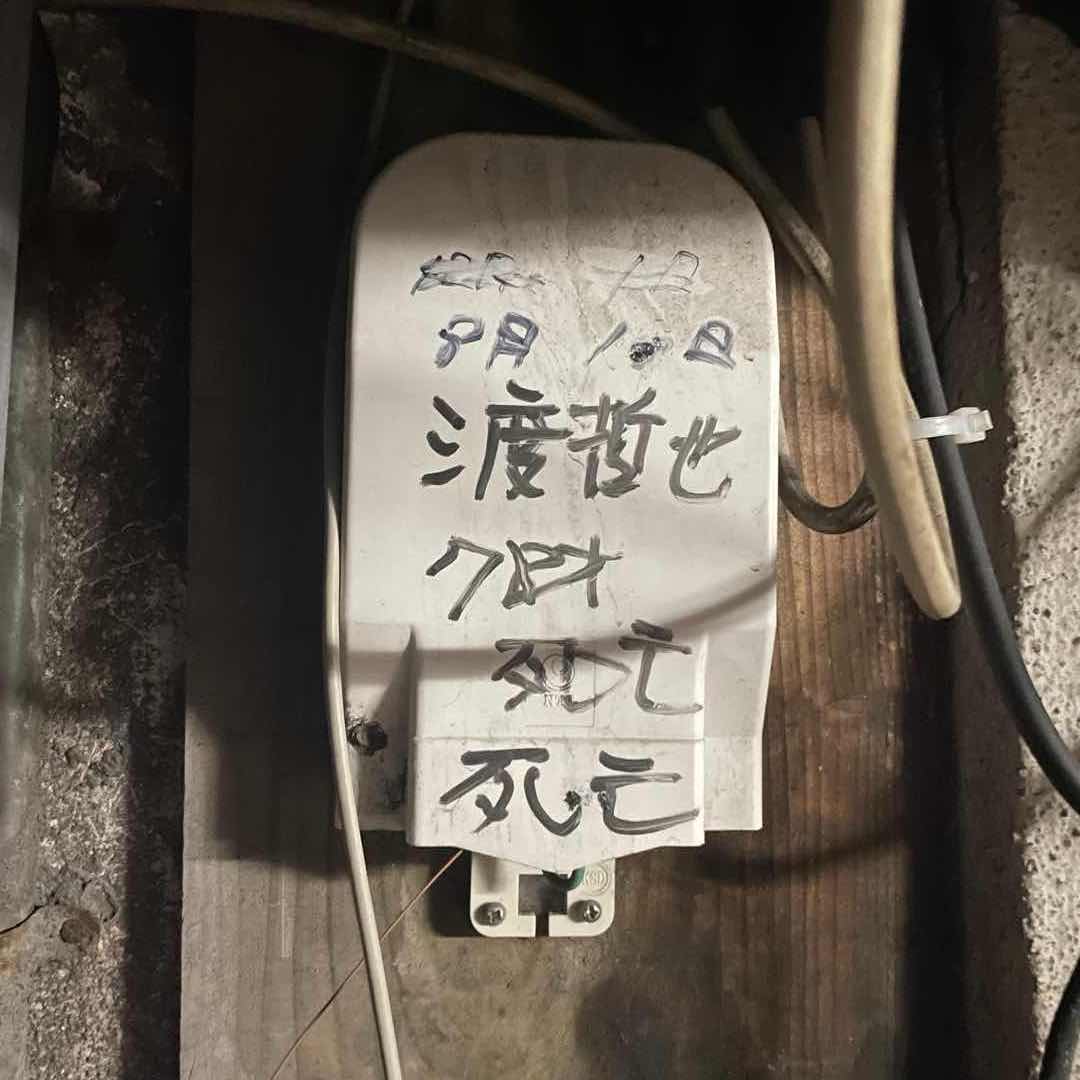 8月10日
渡哲也
78才
死亡
死亡